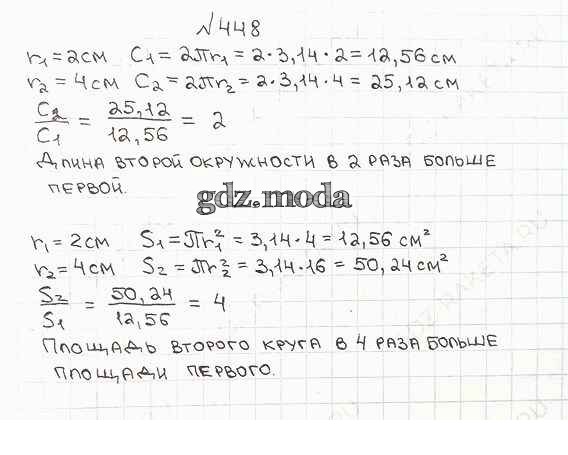 №448
r₁ = 2см C₁ = 2πr₁ = 2·3,14·2 = 12,56 см
r₂ = 4 см C₂ = 2πr₂ = 2·3,14·4 = 25,12 см
C₂/C₁ = 25,12/12,56 = 2
Длина второй окружности в 2 раза больше
первой.
gdz.moda
r₁ = 2см S₁ = πr₁² = 3,14·4 = 12,56 см²
r₂ = 4см S₂ = πr₂² = 3,14·16 = 50,24 см²
S₂/S₁ = 50,24/12,56 = 4
Площадь второго круга в 4 раза больше
площади первого.